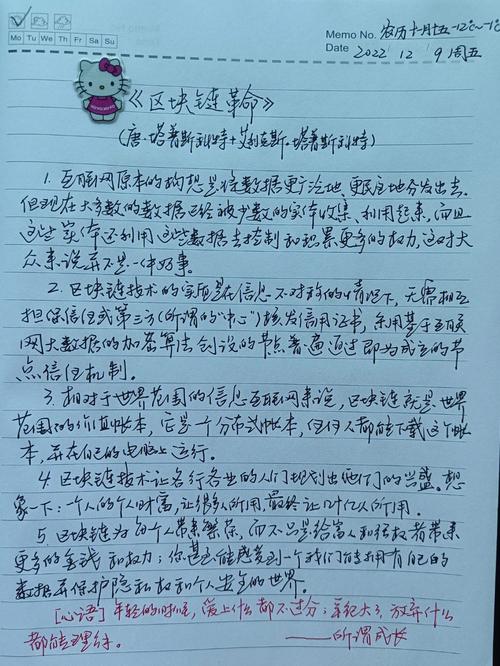 Mo Tu We Th Fr Sa Su
Memo No. 农历十月十五 -12℃~-1℃
Date 2022 / 12 / 9 周五
《区块链革命》
(唐·塔普斯科特+艾利克斯·塔普斯科特)
1. 互联网原本的构想是将数据更广泛地、更民主地分发出去。
但现在大多数的数据已经被少数的实体收集、利用起来,而且
这些实体还利用这些数据去控制和积累更多的权力,这对大
众来说并不是一件好事。
2. 区块链技术的实质是在信息不对称的情况下,无需相互
担保信任或第三方(所谓的“中心”)核发信用证书,采用基于互联
网大数据的加密算法创设的节点普遍通过即为成立的节
点信任机制。
3. 相对于世界范围的信息互联网来说,区块链就是世界
范围的价值账本,它是一个分布式账本,任何人都能下载这个账
本,并在自己的电脑上运行。
4. 区块链技术让各行各业的人们规划出他们的兴盛。想
象一下:一个人的个人财富,让很多人所用,最终让几十亿人所用。
5. 区块链为每个人带来繁荣,而不只是给富人和强权者带来
更多的金钱和权力;你甚至能感受到一个我们能拥有自己的
数据并保护隐私权和个人安全的世界。
[心语] 年轻的时候,爱上什么都不过分;年纪大了,放弃什么
都能理解。 ——所谓成长